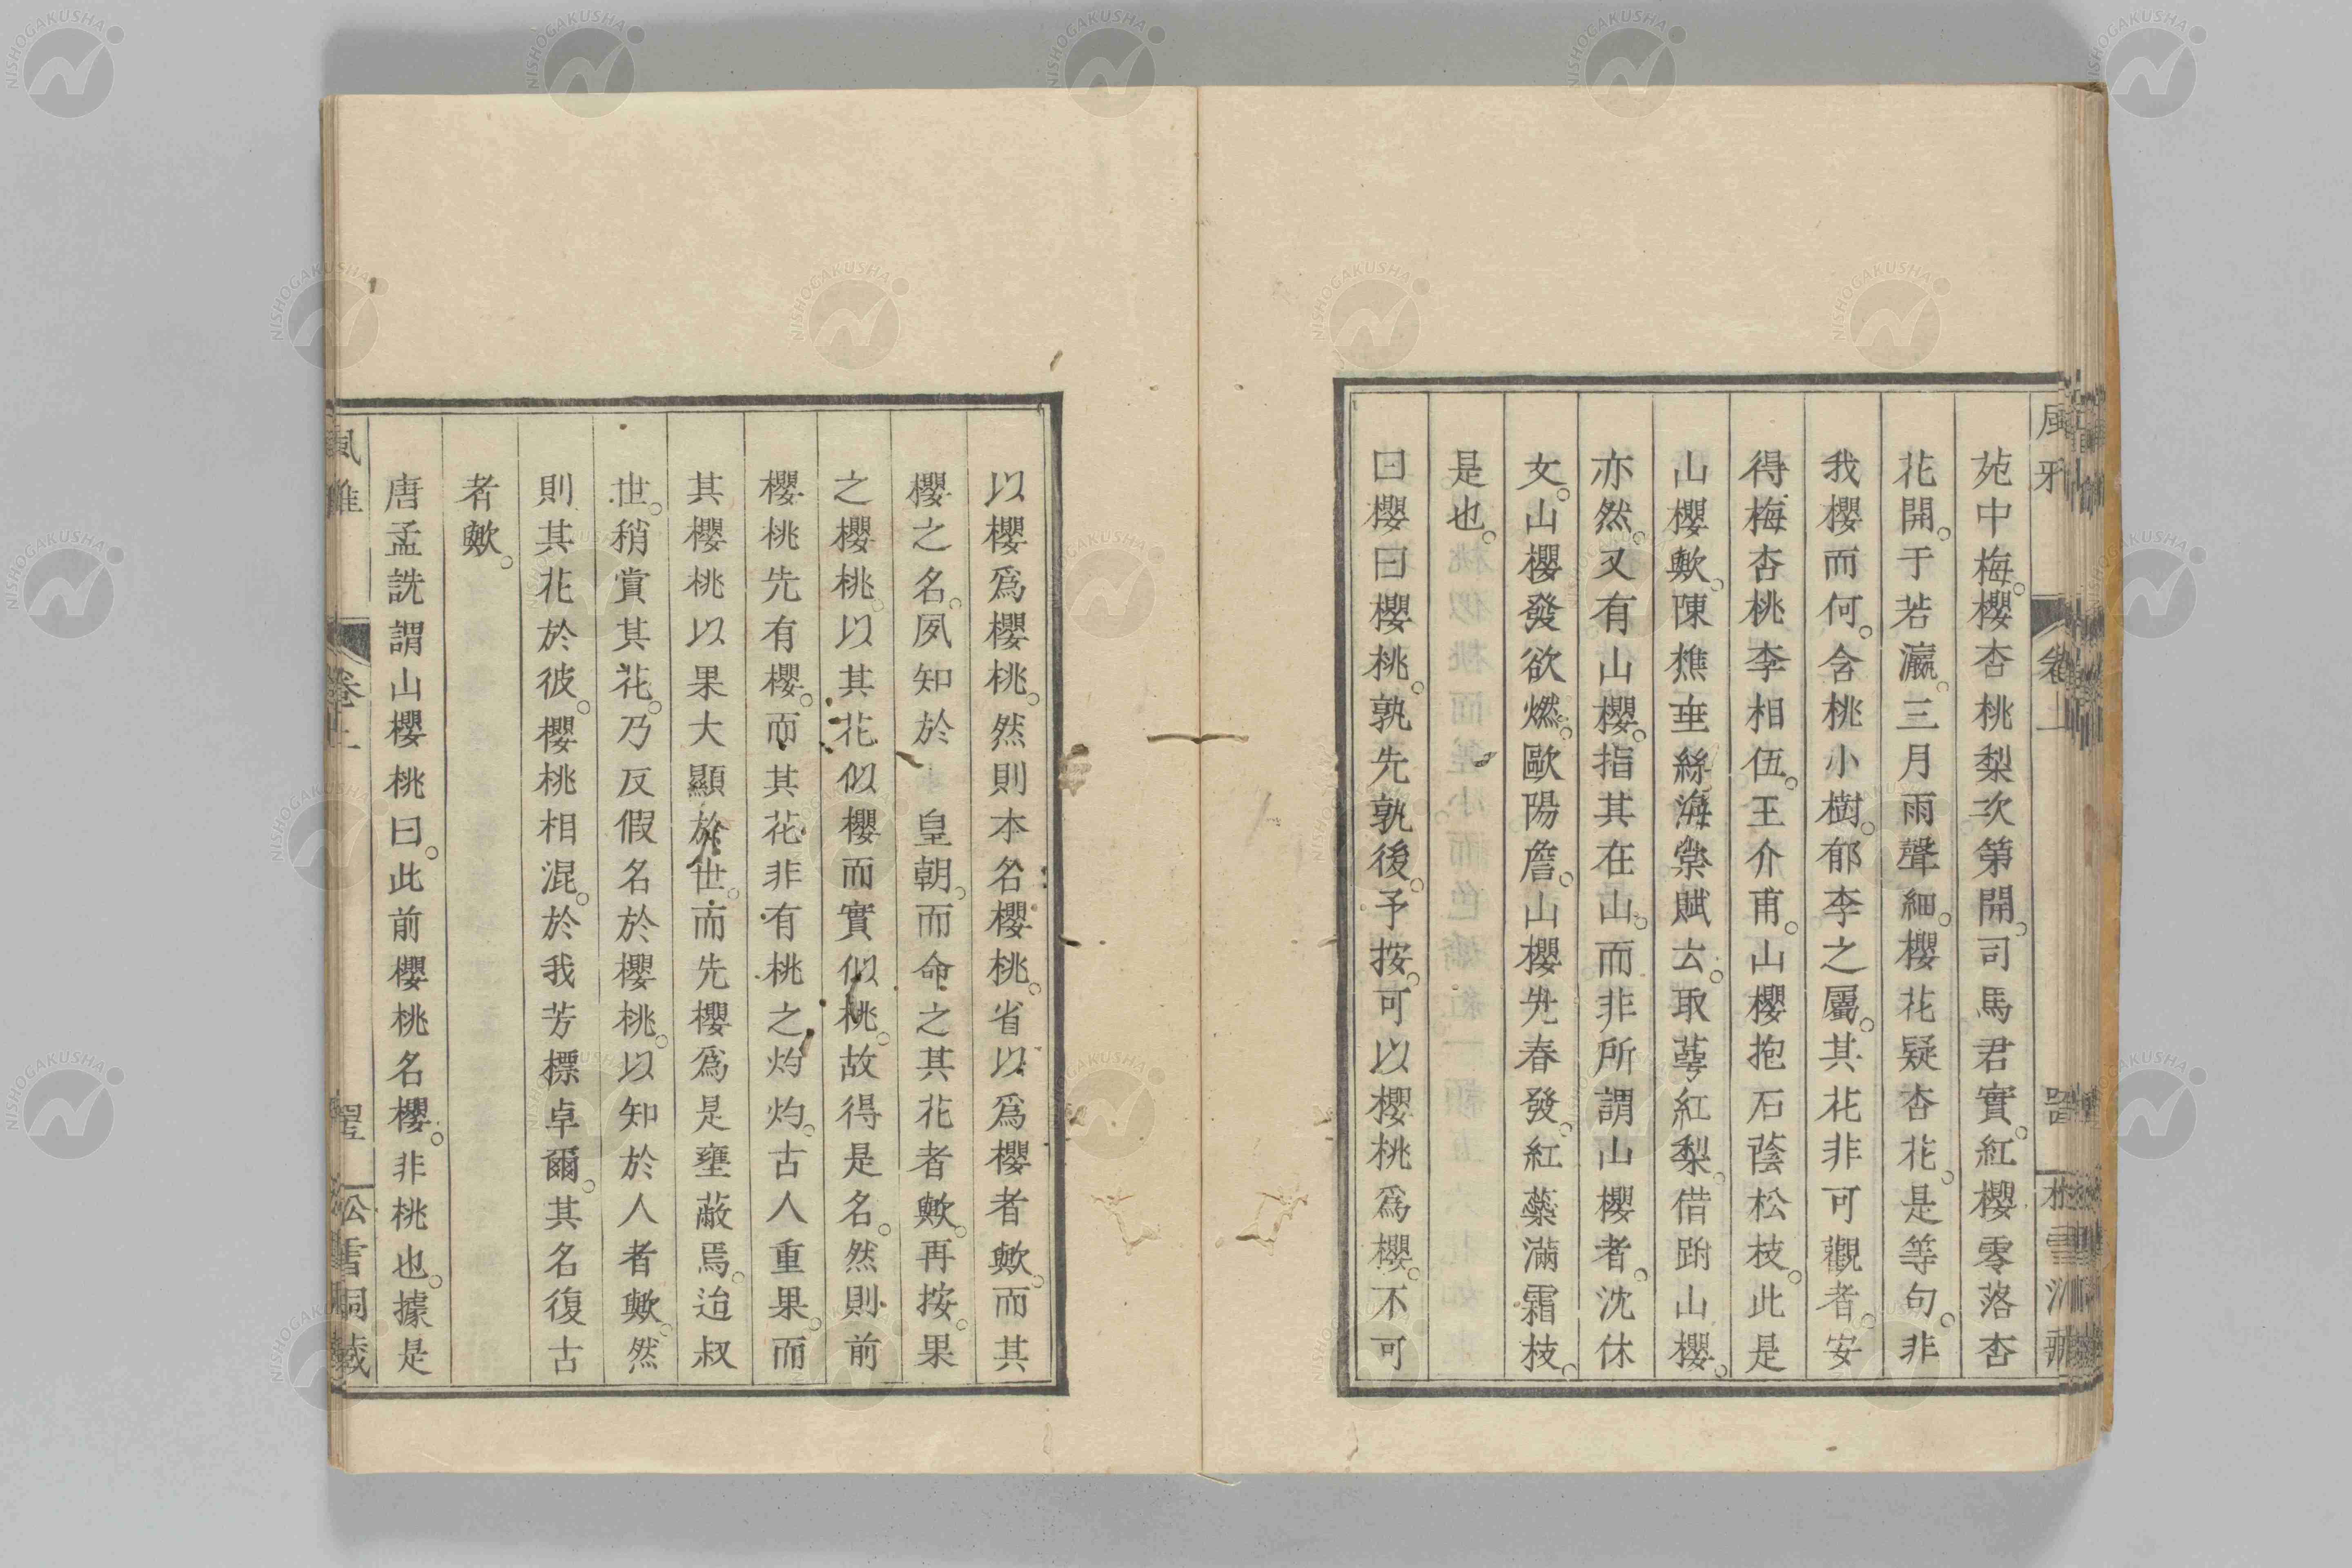 苑中梅。櫻杏桃梨次第開。司馬君實。紅櫻零落杏
花開。于若瀛。三月雨聲細。櫻花疑杏花。是等句。非
我櫻而何。含桃小樹。郁李之屬。其花非可觀者。安
得梅杏桃李相伍。王介甫。山櫻抱石蔭松枝。此是
山櫻歟。陳樵垂絲海棠賦云。取蕚紅梨。借跗山櫻。
亦然。又有山櫻。指其在山。而非所謂山櫻者。沈休
文。山櫻發欲燃。歐陽詹。山櫻先春發。紅蘂滿霜枝。
是也。
曰櫻曰櫻桃。孰先孰後。予按。可以櫻桃爲櫻。不可
以櫻爲櫻桃。然則本名櫻桃。省以爲櫻者歟。而其
櫻之名。夙知於 皇朝。而命之其花者歟。再按。果
之櫻桃。以其花似櫻而實似桃。故得是名。然則前
櫻桃先有櫻。而其花非有桃之灼灼。古人重果。而
其櫻桃以果大顯於世。而先櫻爲是壅蔽焉。迨叔
世。稍賞其花。乃反假名於櫻桃。以知於人者歟。然
則其花於彼。櫻桃相混。於我芳標卓爾。其名復古
者歟。
唐孟詵謂山櫻桃曰。此前櫻桃名櫻。非桃也。據是
風雅
卷上